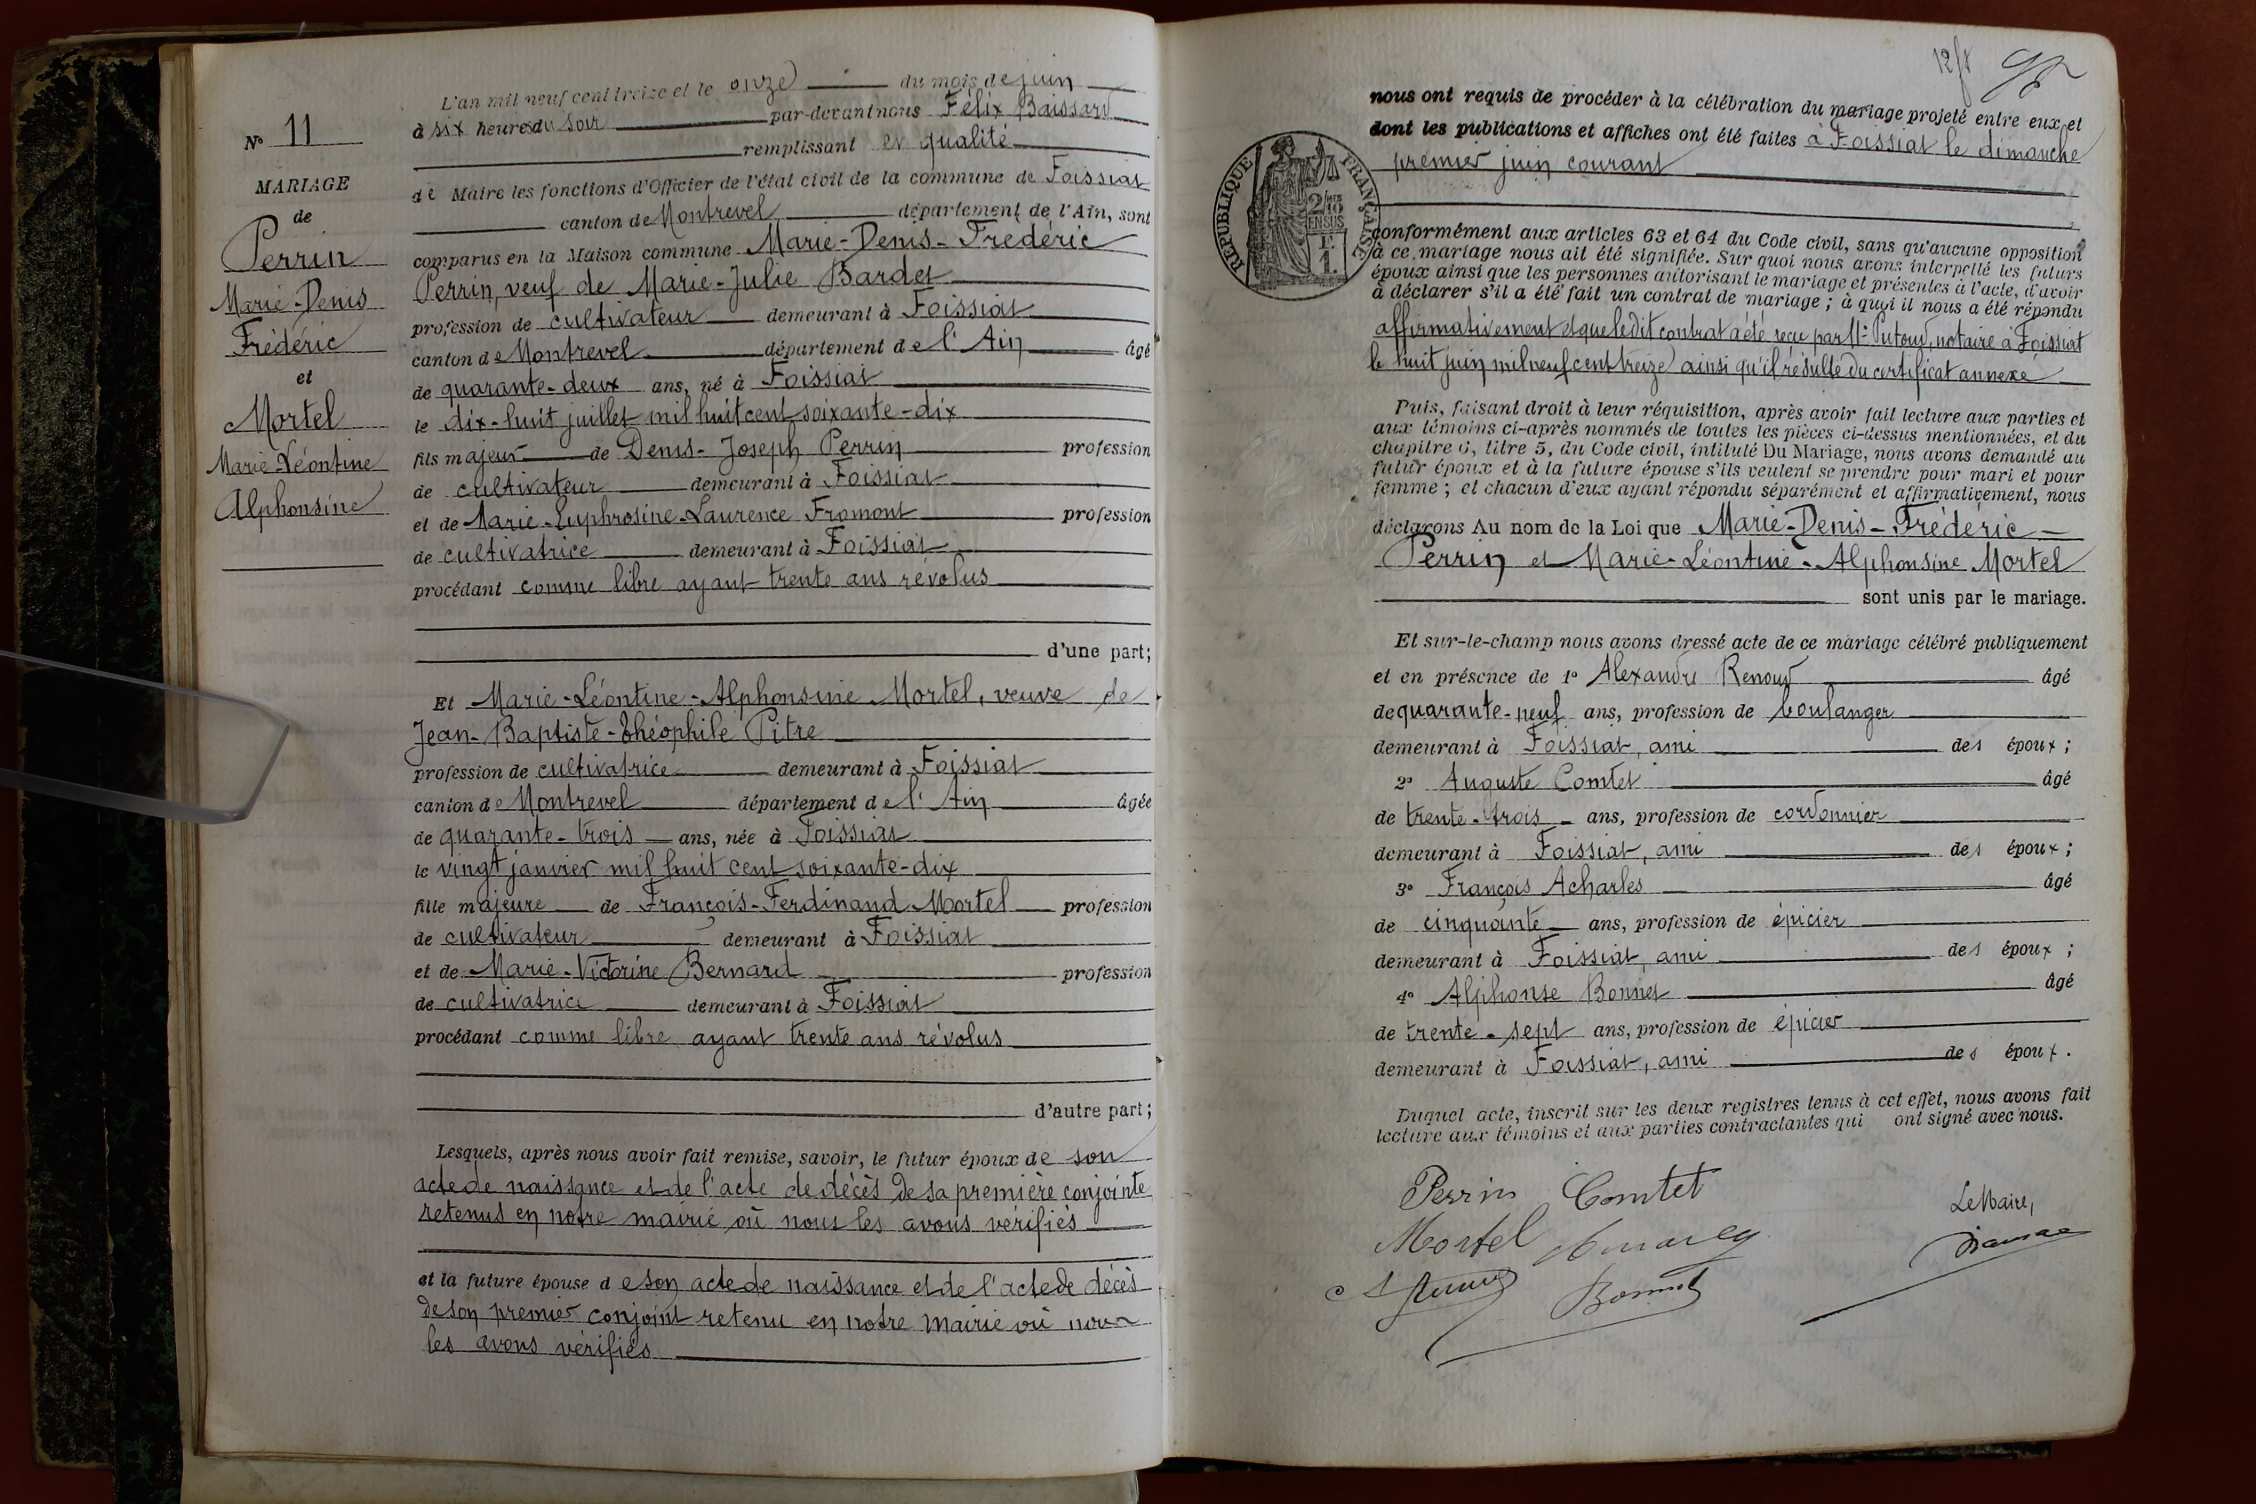 L'an mil neuf cent treize et le onze du mois de juin
à six heures du soir par-devant nous Félix Baissard
remplissant en qualité
de Maire les fonctions d'Officier de l'état civil de la commune de Foissiat
canton de Montrevel département de l'Ain, sont
comparus en la Maison commune Marie-Denis-Frédéric
Perrin, veuf de Marie-Julie Bardet
profession de cultivateur demeurant à Foissiat
canton de Montrevel département de l'Ain âgé
de quarante-deux ans, né à Foissiat
le dix-huit juillet mil huit cent soixante-dix
fils majeur de Denis-Joseph Perrin profession
de cultivateur demeurant à Foissiat
et de Marie-Euphrosine-Laurence Fromont profession
de cultivatrice demeurant à Foissiat
procédant comme libre ayant trente ans révolus
d'une part;
Et Marie-Léontine-Alphonsine Mortel, veuve de
Jean-Baptiste-Théophile Pitre
profession de cultivatrice demeurant à Foissiat
canton de Montrevel département de l'Ain âgée
de quarante-trois ans, née à Foissiat
le vingt janvier mil huit cent soixante-dix
fille majeure de François-Ferdinand Mortel profession
de cultivateur demeurant à Foissiat
et de Marie-Victorine Bernard profession
de cultivatrice demeurant à Foissiat
procédant comme libre ayant trente ans révolus
d'autre part;
Lesquels, après nous avoir fait remise, savoir, le futur époux de son
acte de naissance et de l'acte de décès de sa première conjointe
retenus en notre mairie où nous les avons vérifiés
et la future épouse de son acte de naissance et de l'acte de décès
de son premier conjoint retenu en notre mairie où nous
les avons vérifiés
N° 11
MARIAGE
de
Perrin
Marie-Denis
Frédéric
et
Mortel
Marie Léontine
Alphonsine
12/8
nous ont requis de procéder à la célébration du mariage projeté entre eux et
dont les publications et affiches ont été faites à Foissiat le dimanche
premier juin courant
RÉPUBLIQUE FRANÇAISE
2/10
EN SUS
1F
1.
conformément aux articles 63 et 64 du Code civil, sans qu'aucune opposition
à ce mariage nous ait été signifiée. Sur quoi nous avons interpellé les futurs
époux ainsi que les personnes autorisant le mariage et présentes à l'acte, d'avoir
à déclarer s'il a été fait un contrat de mariage; à quoi il nous a été répondu
affirmativement et que ledit contrat a été reçu par Me Putoud, notaire à Foissiat
le huit juin mil neuf cent treize ainsi qu'il résulte du certificat annexé
Puis, faisant droit à leur réquisition, après avoir fait lecture aux parties et
aux témoins ci-après nommés de toutes les pièces ci-dessus mentionnées, et du
chapitre 6, titre 5, du Code civil, intitulé Du Mariage, nous avons demandé au
futur époux et à la future épouse s'ils veulent se prendre pour mari et pour
femme; et chacun d'eux ayant répondu séparément et affirmativement, nous
déclarons Au nom de la Loi que Marie-Denis-Frédéric
Perrin et Marie-Léontine-Alphonsine Mortel
sont unis par le mariage.
Et sur-le-champ nous avons dressé acte de ce mariage célébré publiquement
et en présence de 1° Alexandre Renoud âgé
de quarante-neuf ans, profession de boulanger
demeurant à Foissiat, ami des époux;
2° Auguste Comtet âgé
de trente-trois ans, profession de cordonnier
demeurant à Foissiat, ami des époux;
3° François Acharles âgé
de cinquante ans, profession de épicier
demeurant à Foissiat, ami des époux;
4° Alphonse Bonnet âgé
de trente-sept ans, profession de épicier
demeurant à Foissiat, ami des époux.
Duquel acte, inscrit sur les deux registres tenus à cet effet, nous avons fait
lecture aux témoins et aux parties contractantes qui ont signé avec nous.
Perrin Comtet
Mortel
Le Maire,
Bonnet